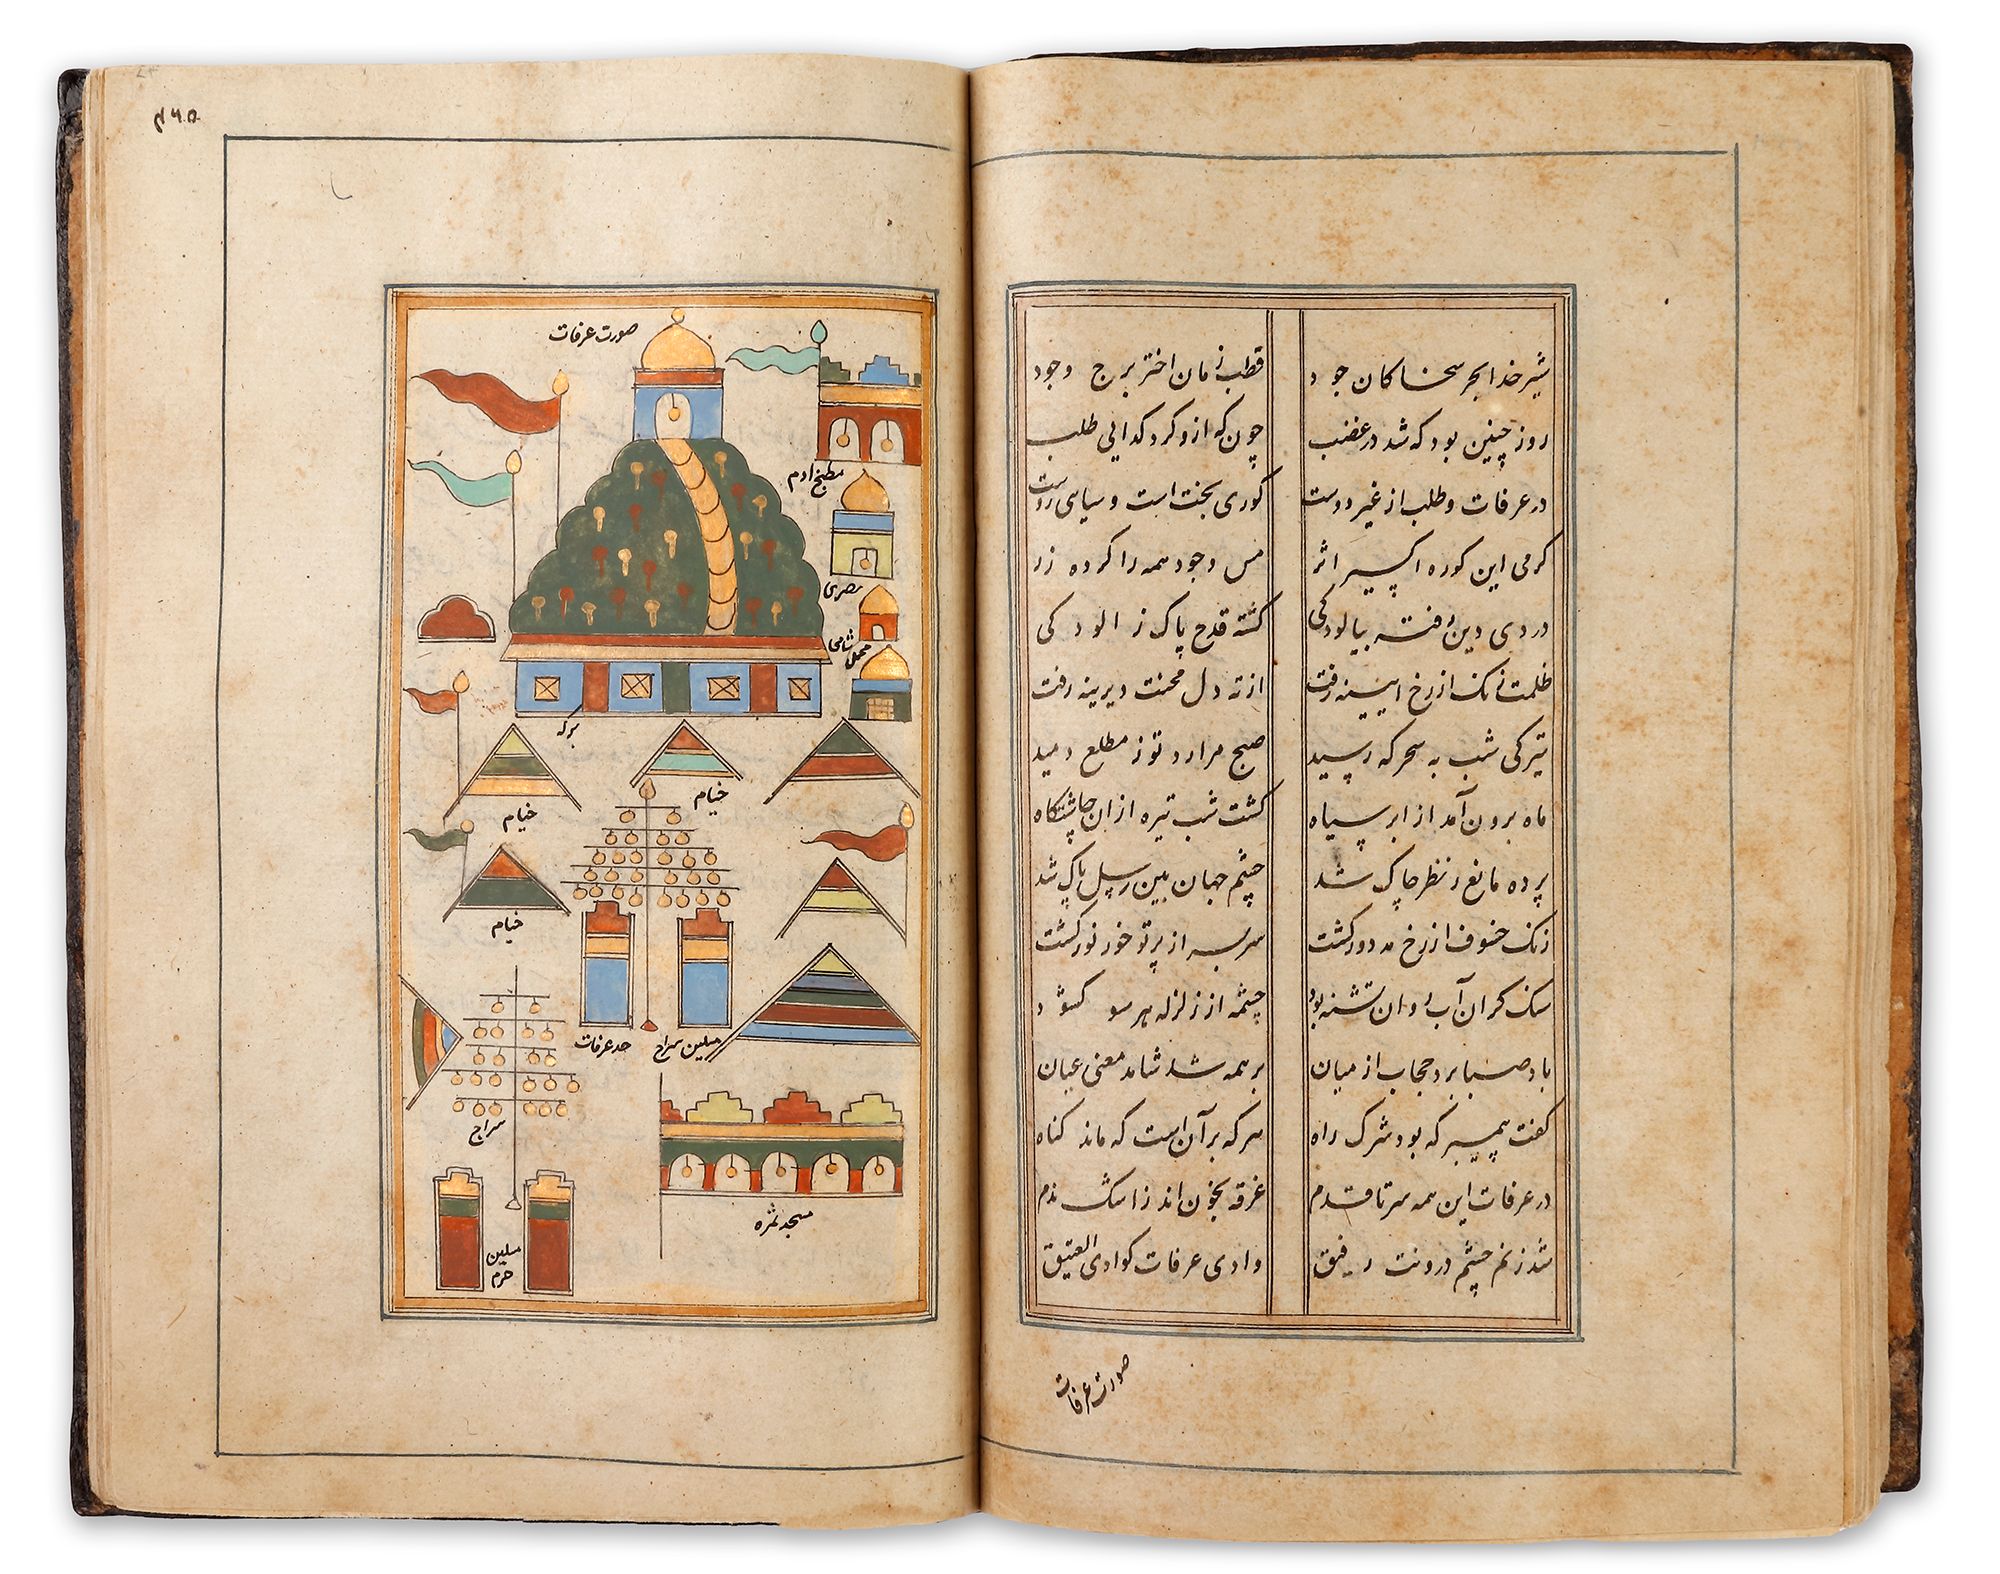 شیر خدا بحر سخا کان جود
قطب زمان اختر برج وجود
روز چنین بود که شد در غضب
چون که ازو کرد کدایی طلب
در عرفات و طلب از غیر دوست
کوری بخت است و سیاسی روست
کرمی این کوره اکسیر اثر
مس وجود همه را کرده زر
دردی دین رفت بپالودکی
کشته قدح پاک ز الودکی
ظلمت زنک از رخ ایینه رفت
از ته دل محنت دیرینه رفت
تیرکی شب به سحرکه رسید
صبح مراد تو ز مطلع دمید
ماه برون آمد از ابر سیاه
کشت شب تیره از ان چاشتکاه
پرده مانع ز نظر چاک شد
چشم جهان بین ز سبل پاک شد
زنک خسوف از رخ مه دور کشت
سر بسر از پرتو خور نور کشت
سنک کران آب روان تشنه بود
چشمه از زلزله هر سو کشود
باد صبا برد حجاب از میان
بر همه شد شاهد معنی عیان
کفت پیمبر که بود شرک راه
هر که بر آن است که ماند کناه
در عرفات این همه سر تا قدم
غرقه بخون اند ز اشک ندم
شد ز نم چشم درونت رفیق
وادی عرفات کوادی العتیق
صورت عرفات
۴۶۵
صورت عرفات
مطبخ ادم
مصری
محمل شامی
برکه
خیام
خیام
خیام
حد عرفات
میلین سراج
سراج
مسجد نمره
میلین
حرم